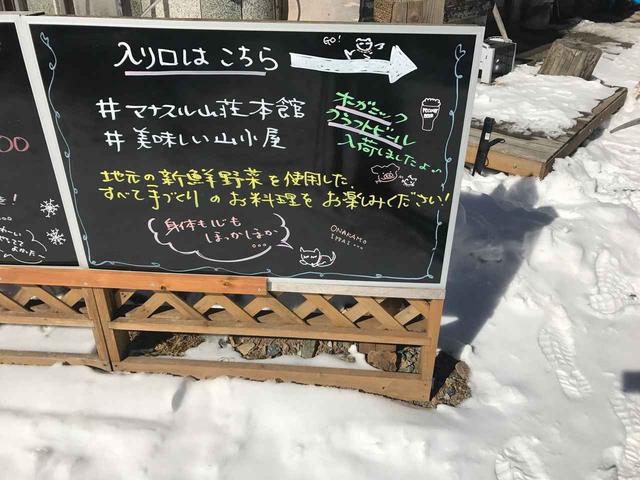 入り口は こちら
GO!
#マナスル山荘本館
#美味しい山小屋
オーガニック
クラフトビール
入荷しましたよ〜
地元の新鮮野菜を使用した、
すべて手づくりのお料理をお楽しみください!
身体も心も
ほっかほか
...
ONAKAMO
IPPAI...
00